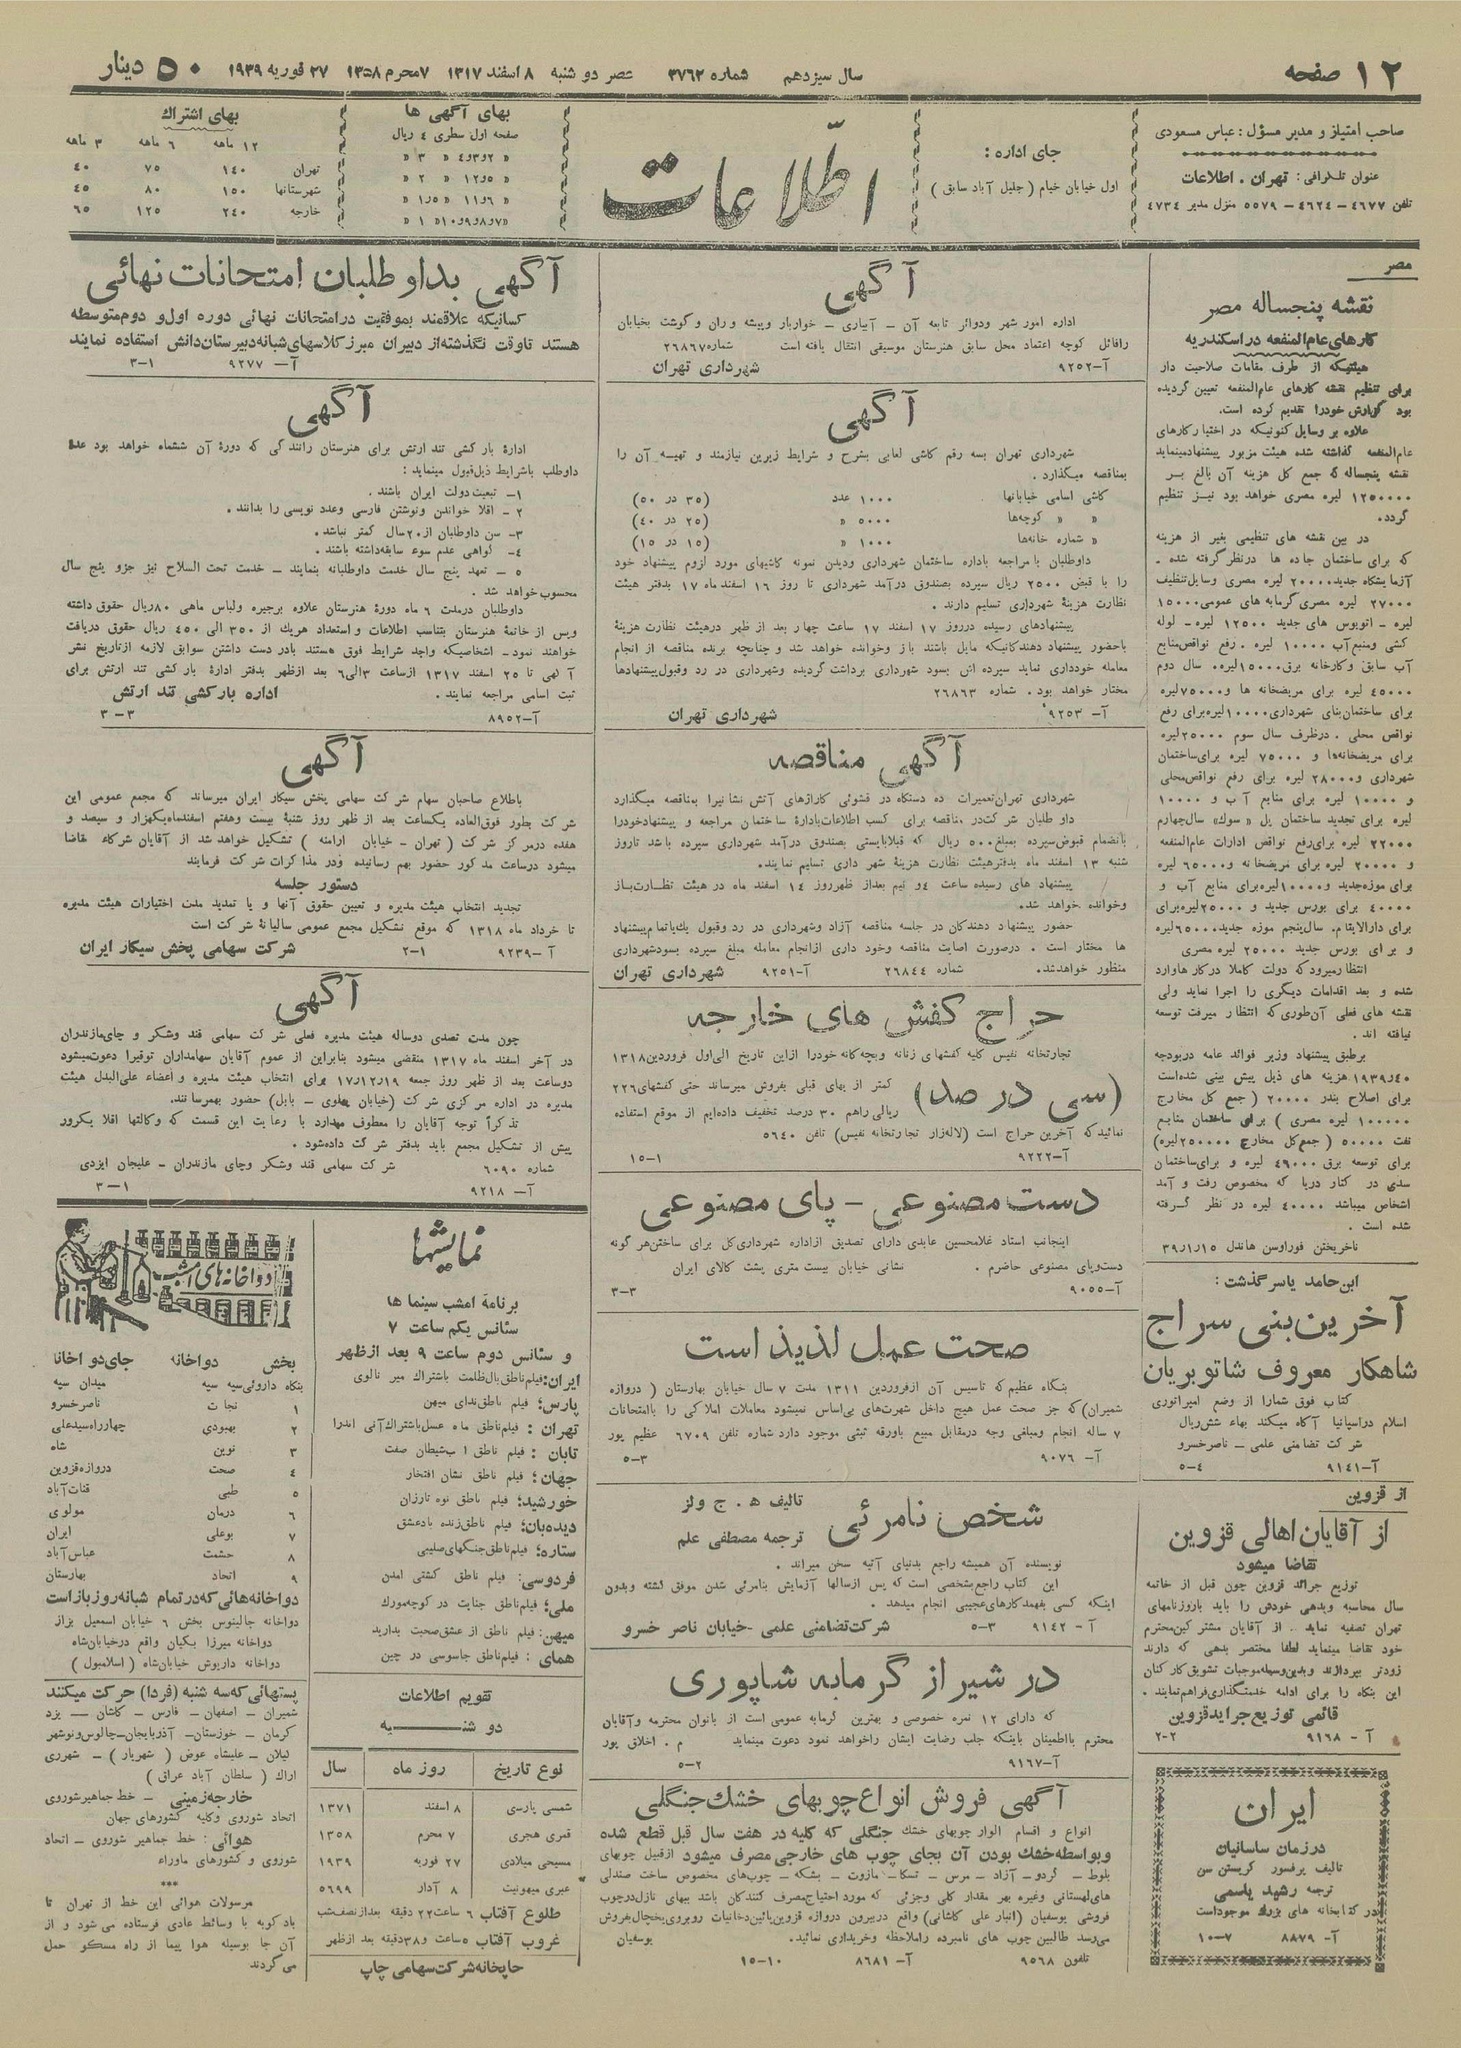 ۱۲ صفحه
سال سیزدهم شماره ۳۷۶۲ عصر دو شنبه ۸ اسفند ۱۳۱۷ ۷ محرم ۱۳۵۸ ۲۷ فوریه ۱۹۳۹
۵۰ دینار
صاحب امتیاز و مدیر مسؤل : عباس مسعودی
عنوان تلگرافی : تهران . اطلاعات
تلفن ۴۶۷۷ – ۴۶۲۴ – ۵۵۷۹ منزل مدیر ۴۷۳۴
جای اداره :
اول خیابان خیام ( جلیل آباد سابق )
اطّلاعات
بهای آگهی ها
صفحه اول سطری ۴ ریال
« ۲و۳و۴ « ۳ «
« ۵و۱۲ « ۲ «
« ۶و۱۱ « ۱ر۵ «
«۷و۸و۹و۱۰« ۱ «
بهای اشتراك
۱۲ ماهه ۶ ماهه ۳ ماهه
تهران ۱۴۰ ۷۵ ۴۰
شهرستانها ۱۵۰ ۸۰ ۴۵
خارجه ۲۴۰ ۱۲۵ ۶۵
مصر
نقشه پنجساله مصر
کارهای عام‌المنفعه در اسکندریه
هیئتیکه از طرف مقامات صلاحیت دار
برای تنظیم نقشه کارهای عام‌المنفعه تعیین گردیده
بود گزارش خودرا تقدیم کرده است.
علاوه بر وسایل کنونیکه در اختیار کارهای
عام‌المنفعه گذاشته شده هیئت مزبور پیشنهاد مینماید
نقشه پنجساله که جمع کل هزینه آن بالغ بـر
۱۲۵۰۰۰۰ لیره مصری خواهد بود نیـز تنظیم
گردد.
در بین نقشه های تنظیمی بغیر از هزینه
که برای ساختمان جاده ها در نظر گرفته شده .
آزمایشگاه جدید ۲۰۰۰۰ لیره مصری وسایل تنظیف
۲۷۰۰۰ لیره مصری گرمابه های عمومی ۱۵۰۰۰
لیره – اتوبوس های جدید ۱۲۵۰۰ لیره – لوله
کشی ومنبع آب ۱۰۰۰۰ لیره . رفع نواقص منابع
آب سابق وکارخانه برق ۱۵۰۰۰ لیره. سال دوم
۴۵۰۰۰ لیره برای مریضخانه ها و ۷۵۰۰۰ لیره
برای ساختمان بنای شهرداری ۱۰۰۰۰ لیره برای رفع
نواقص محلی . درظرف سال سوم ۲۵۰۰۰ لیره
برای مریضخانه‌ها و ۷۵۰۰۰ لیره برای ساختمان
شهرداری و ۲۸۰۰۰ لیره برای رفع نواقص محلی
و ۱۰۰۰۰ لیره برای منابع آب و ۱۰۰۰۰
لیره برای تجدید ساختمان پل « سوك» سال چهارم
۲۲۰۰۰ لیره برای رفع نواقص ادارات عام‌المنفعه
و ۲۰۰۰۰ لیره برای مریضخانه و ۶۵۰۰۰ لیره
برای موزه جدید و ۱۰۰۰۰ لیره برای منابع آب و
۴۰۰۰۰ برای بورس جدید و ۲۵۰۰۰ لیره برای
برای دارالایتام. سال پنجم موزه جدید ۶۵۰۰۰ لیره
و برای بورس جدید ۲۵۰۰۰ لیره مصری
انتظار میرود که دولت کاملا در کار ها وارد
شده و بعد اقدامات دیگری را اجرا نماید ولی
نقشه های فعلی آن طوری که انتظار میرفت توسعه
نیافته اند .
برطبق پیشنهاد وزیر فوائد عامه در بودجه
۱۹۳۹ر۴۰ هزینه های ذیل پیش بینی شده است
برای اصلاح بندر ۲۰۰۰۰ ( جمع کل مخارج
۱۰۰۰۰۰ لیره مصری ) برای ساختمان منابع
نفت ۵۰۰۰۰ ( جمع کل مخارج ۲۵۰۰۰۰ لیره)
برای توسعه برق ۴۹۰۰۰ لیره و برای ساختمان
سدی در کنار دریا که مخصوص رفت و آمد
اشخاص میباشد ۴۰۰۰۰ لیره در نظر گرفته
شده است .
ناخریختن فوراوسن هاندل ۱۵ر۱ر۳۹
ابن حامد یاسر گذشت :
آخرین بنی سراج
شاهکار معروف شاتوبریان
کتاب فوق شمارا از وضع امپراتوری
اسلام در اسپانیا آگاه میکند بهاء شش ریال
شرکت تضامنی علمی – ناصرخسرو
آ-۹۱۴۱ ۴-۵
از قزوین
از آقایان اهالی قزوین
تقاضا میشود
توزیع جرائد قزوین چون قبل از خاتمه
سال محاسبه وبدهی خودش را باید باروزنامهای
تهران تصفیه نماید . از آقایان مشترکین محترم
خود تقاضا مینماید لطفا مختصر بدهی که دارند
زودتر بپردازند وبدین‌وسیله موجبات تشویق کارکنان
این بنگاه را برای ادامه خدمتگذاری فراهم نمایند .
قائمی توزیع جراید قزوین
آ – ۹۱۶۸ ۲-۲
ایران
در زمان ساسانیان
تالیف پرفسور کریستن سن
ترجمه رشید یاسمی
در کتابخانه های بزرك موجود است
آ- ۸۸۷۹ ۷-۱۰
آگهی
اداره امور شهر ودوائر تابعه آن – آبیاری – خواربار وپیشه وران و گوشت بخیابان
رافائل کوچه اعتماد محل سابق هنرستان موسیقی انتقال یافته است شماره ۲۶۸۶۷
آ-۹۲۵۲ شهرداری تهران
آگهی
شهرداری تهران بسه رقم کاشی لعابی بشرح و شرایط زیرین نیازمند و تهیسه آن را
بمناقصه میگذارد.
کاشی اسامی خیابانها ۱۰۰۰ عدد (۳۵ در ۵۰)
« « کوچه‌ها ۵۰۰۰ « (۲۵ در ۴۰)
« شماره خانه‌ها ۱۰۰۰ « (۱۵ در ۱۵)
داوطلبان با مراجعه باداره ساختمان شهرداری ودیدن نمونه کاشیهای مورد لزوم پیشنهاد خود
را با قبض ۲۵۰۰ ریال سپرده بصندوق درآمد شهرداری تا روز ۱۶ اسفند ماه ۱۷ بدفتر هیئت
نظارت هزینهٔ شهرداری تسلیم دارند .
پیشنهادهای رسیده درروز ۱۷ اسفند ۱۷ ساعت چهار بعد از ظهر درهیئت نظارت هزینهٔ
باحضور پیشنهاد دهندکانیکه مایل باشند باز وخوانده خواهد شد و چنانچه برنده مناقصه از انجام
معامله خودداری نماید سپرده اش بسود شهرداری برداشت گردیده وشهرداری در رد وقبول پیشنهادها
مختار خواهد بود . شماره ۲۶۸۶۳
آ- ۹۲۵۳ شهرداری تهران
آگهی مناقصه
شهرداری تهران تعمیرات ده دستگاه در قشوئی کاراژهای آتش نشانیرا بمناقصه میگذارد
داو طلبان شرکت در مناقصه برای کسب اطلاعات بادارهٔ ساختمان مراجعه و پیشنهاد خود را
بانضمام قبوض سپرده بمبلغ ۵۰۰ ریال که قبلا بایستی بصندوق درآمد شهرداری سپرده باشد تاروز
شنبه ۱۳ اسفند ماه بدفتر هیئت نظارت هزینهٔ شهر داری تسلیم نمایند.
پیشنهاد های رسیده ساعت ۴ و نیم بعد از ظهر روز ۱۴ اسفند ماه در هیئت نظارت بـاز
وخوانده خواهد شد.
حضور پیشنهاد دهندکان در جلسه مناقصه آزاد وشهرداری در رد وقبول یك یا تمام پیشنهاد
ها مختار است . درصورت اصابت مناقصه وخود داری از انجام معامله مبلغ سپرده بسود شهرداری
منظور خواهد شد. شماره ۲۶۸۴۴ آ-۹۲۵۱ شهرداری تهران
حراج کفش های خارجه
تجارتخانه نفیس کلیه کفشهای زنانه وبچه گانه خودرا ازاین تاریخ الی اول فروردین ۱۳۱۸
(سی در صد)
کمتر از بهای قبلی بفروش میرساند حتی کفشهای ۲۲۶
ریالی راهم ۳۰ درصد تخفیف داده‌ایم از موقع استفاده
نمائید که آخرین حراج است (لاله‌زار تجارتخانه نفیس) تلفن ۵۶۴۰
آ-۹۲۲۲ ۱-۱۵
دست مصنوعی – پای مصنوعی
اینجانب استاد غلامحسین عابدی دارای تصدیق ازاداره شهرداری کل برای ساختن هر گونه
دست وپای مصنوعی حاضرم . نشانی خیابان بیست متری پشت کالای ایران
آ-۹۰۵۵ ۳-۳
صحت عمل لذیذ است
بنگاه عظیم که تاسیس آن ازفروردین ۱۳۱۱ مدت ۷ سال خیابان بهارستان ( دروازه
شمیران) که جز صحت عمل هیچ داخل شهرت‌های بی‌اساس نمیشود معاملات املاکی را باامتحانات
۷ ساله انجام ومبلغی وجه درمقابل مبیع باورقه ثبتی موجود دارد شماره تلفن ۶۷۰۹ عظیم پور
آ- ۹۰۷۶ ۳-۵
شخص نامرئی
تالیف ه . ج ولز
ترجمه مصطفی علم
نویسنده آن همیشه راجع بدنیای آتیه سخن میراند .
این کتاب راجع بشخصی است که پس ازسالها آزمایش بنامرئی شدن موفق گشته وبدون
اینکه کسی بفهمد کارهای عجیبی انجام میدهد .
آ - ۹۱۴۲ ۳-۵ شرکت تضامنی علمی -خیابان ناصر خسرو
در شیراز گرمابه شاپوری
که دارای ۱۲ نمره خصوصی و بهترین گرمابه عمومی است از بانوان محترمه وآقایان
محترم بااطمینان باینکه جلب رضایت ایشان راخواهد نمود دعوت مینماید م . اخلاق پور
آ-۹۱۶۷ ۲-۵
آگهی فروش انواع چوبهای خشك جنگلی
انواع و اقسام الوار چوبهای خشك جنگلی که کلیه در هفت سال قبل قطع شده
وبواسطه خشك بودن آن بجای چوب های خارجی مصرف میشود ازقبیل چوبهای
بلوط – گردو – آزاد – مرس – تسکا – مازوت – بشکه – چوب‌های مخصوص ساخت صندلی
های لهستانی وغیره بهر مقدار کلی وجزئی که مورد احتیاج مصرف کنندگان باشد ببهای نازل درچوب
فروشی یوسفیان (انبار علی کاشانی) واقع دربیرون دروازه قزوین پائین دخانیات روبروی یخچال بفروش
می‌رسد طالبین چوب های نامبرده راملاحظه وخریداری نمائید. یوسفیان
تلفون ۹۵۶۸ آ- ۸۶۸۱ ۱۰-۱۵
آگهی بداوطلبان امتحانات نهائی
کسانیکه علاقمند بموفقیت در امتحانات نهائی دوره اول و دوم متوسطه
هستند تاوقت نگذشته از دبیران مبرز کلاسهای شبانه دبیرستان دانش استفاده نمایند
آ- ۹۲۷۷ ۱-۳
آگهی
ادارهٔ بار کشی تند ارتش برای هنرستان رانندگی که دورهٔ آن ششماه خواهد بود عدهٔ
داوطلب باشرایط ذیل قبول مینماید :
۱– تبعیت دولت ایران باشند .
۲ – اقلا خواندن ونوشتن فارسی وعدد نویسی را بدانند .
۳– سن داوطلبان از ۲۰ سال کمتر نباشد .
۴– گواهی عدم سوء سابقه داشته باشند .
۵ – تعهد پنج سال خدمت داوطلبانه بنمایند – خدمت تحت السلاح نیز جزو پنج سال
محسوب خواهد شد .
داوطلبان درمدت ۶ ماه دورهٔ هنرستان علاوه برجیره ولباس ماهی ۸۰ ریال حقوق داشته
وپس از خاتمهٔ هنرستان بتناسب اطلاعات و استعداد هریك از ۳۵۰ الی ۴۵۰ ریال حقوق دریافت
خواهند نمود – اشخاصیکه واجد شرایط فوق هستند بادر دست داشتن سوابق لازمه ازتاریخ نشر
آگهی تا ۲۵ اسفند ۱۳۱۷ ازساعت ۳ الی ۶ بعد ازظهر بدفتر ادارهٔ بارکشی تند ارتش برای
ثبت اسامی مراجعه نمایند . اداره بارکشی تند ارتش
آ-۸۹۵۲ ۳-۳
آگهی
باطلاع صاحبان سهام شرکت سهامی پخش سیگار ایران میرساند که مجمع عمومی این
شرکت بطور فوق العاده یکساعت بعد از ظهر روز شنبهٔ بیست وهفتم اسفندماه یکهزار و سیصد و
هفده درمرکز شرکت ( تهران – خیابان ارامنه ) تشکیل خواهد شد از آقایان شرکاء تقاضا
میشود درساعت مذکور حضور بهم رسانیده ودر مذاکرات شرکت فرمایند
دستور جلسه
تجدید انتخاب هیئت مدیره و تعیین حقوق آنها و یا تمدید مدت اختیارات هیئت مدیره
تا خرداد ماه ۱۳۱۸ که موقع تشکیل مجمع عمومی سالیانهٔ شرکت است
آ -۹۲۳۹ ۱-۲ شرکت سهامی پخش سیگار ایران
آگهی
چون مدت تصدی دوساله هیئت مدیره فعلی شرکت سهامی قند وشکر و چای مازندران
در آخر اسفند ماه ۱۳۱۷ منقضی میشود بنابراین از عموم آقایان سهامداران توقیرا دعوت میشود
دوساعت بعد از ظهر روز جمعه ۱۷ر۱۲ر۱۹ برای انتخاب هیئت مدیره و اعضاء علی‌البدل هیئت
مدیره در اداره مرکزی شرکت (خیابان پهلوی – بابل) حضور بهمرسانند.
تذکراً توجه آقایان را معطوف میدارد با رعایت این قسمت که وکالتها اقلا یکروز
پیش از تشکیل مجمع باید بدفتر شرکت داده شود .
شماره ۶۰۹۰ شرکت سهامی قند وشکر وچای مازندران – علیجان ایزدی
آ- ۹۲۱۸ ۱-۳
نمایشها
برنامه امشب سینما ها
سئانس یکم ساعت ۷
و سئانس دوم ساعت ۹ بعد از ظهر
ایران: فیلم ناطق بال ظلمت باشتراك میر نالوی
پارس؛ فیلم ناطق ندای میهن
تهران : فیلم ناطق ماه عسل باشتراك آنی اندرا
تابان : فیلم ناطق ا ب شیطان صفت
جهان؛ فیلم ناطق نشان افتخار
خورشید؛ فیلم ناطق نوه تارزان
دیده‌بان؛ فیلم ناطق زنده باد عشق
ستاره؛ فیلم ناطق جنگهای صلیبی
فردوسی: فیلم ناطق کشتی امدن
ملی؛ فیلم ناطق جنایت در کوچه مورك
میهن: فیلم ناطق از عشق صحبت بدارید
همای : فیلم ناطق جاسوسی در چین
تقویم اطلاعات
دو شنبه
نوع تاریخ روز ماه سال
شمسی پارسی ۸ اسفند ۱۳۷۱
قمری هجری ۷ محرم ۱۳۵۸
مسیحی میلادی ۲۷ فوریه ۱۹۳۹
عبری میهونیت ۸ آدار ۵۶۹۹
طلوع آفتاب ۶ ساعت ۲۲ دقیقه بعد از نصف شب
غروب آفتاب ۵ ساعت و ۳۸ دقیقه بعد از ظهر
چاپخانه شرکت سهامی چاپ
دواخانه‌های امشب
بخش دواخانه جای دواخانه
بنگاه داروئی سپه سپه میدان سپه
۱ نجات ناصرخسرو
۲ بهبودی چهارراه سیدعلی
۳ نوین شاه
۴ صحت دروازه قزوین
۵ طبی قنات آباد
۶ درمان مولوی
۷ بوعلی ایران
۸ حشمت عباس آباد
۹ اتحاد بهارستان
دواخانه‌هائی که در تمام شبانه روز باز است
دواخانه جالینوس بخش ۶ خیابان اسمعیل بزاز
دواخانه میرزا یکیان واقع درخیابان شاه
دواخانه داریوش خیابان شاه ( اسلامبول )
پستهائی که سه شنبه (فردا) حرکت میکنند
شمیران – اصفهان – فارس – کاشان – یزد
کرمان – خوزستان – آذربایجان–چالوس ونوشهر
لیلان – علیشاه عوض ( شهریار ) – شهرری
اراك ( سلطان آباد عراق )
خارجه زمینی – خط جماهیر شوروی
اتحاد شوروی وکلیه کشورهای جهان
هوائی : خط جماهیر شوروی – اتحاد
شوروی و کشورهای ماوراء
***
مرسولات هوائی این خط از تهران تا
بادکوبه با وسائط عادی فرستاده می شود و از
آن جا بوسیله هوا پیما از راه مسکو حمل
می گردند